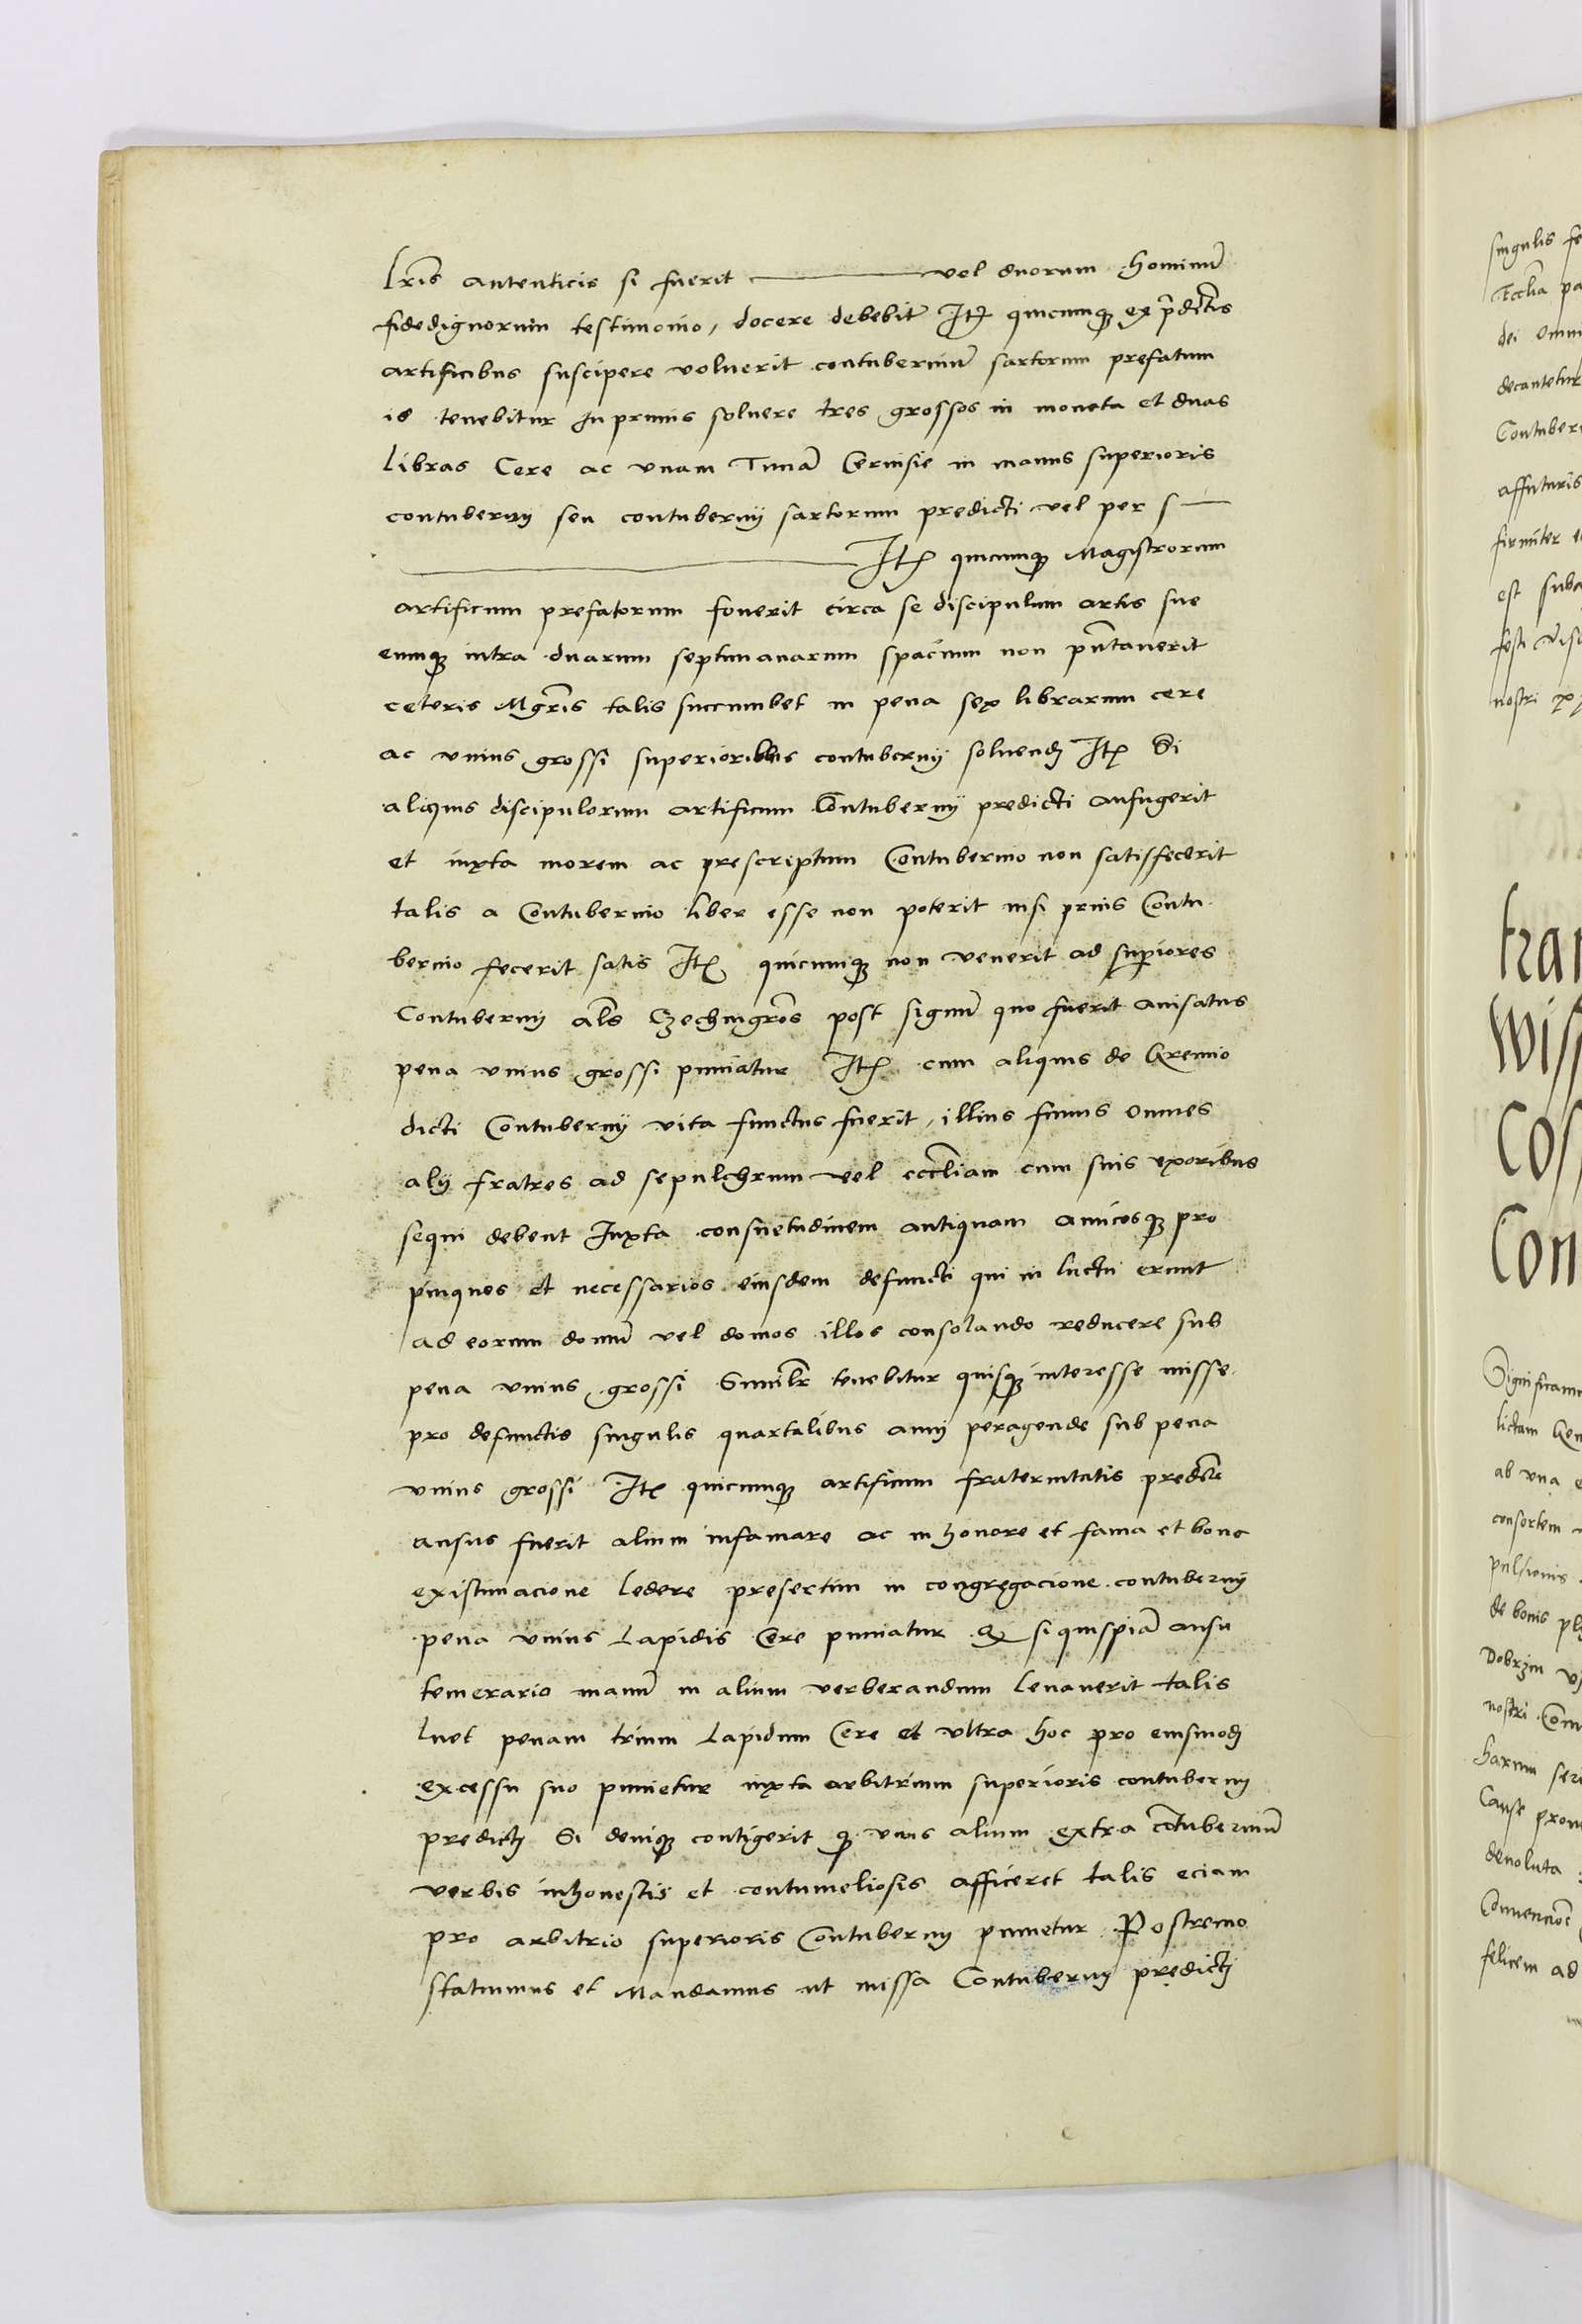 lr̃is autenticis si fuerit ——— vel duorum hominũ
fidedignorum testimonio, docere debebit Itẽ quicumqꝫ ex p̃dictis
artificibus suscipere voluerit contuberniũ sartorum prefatum
is tenebitur In primis soluere tres grossos in moneta et duas
libras Cere ac vnam Tunã Ceruisie in manus superioris
contubernij seu contubernij sartorum predicti vel per s—
——— Itẽ quicumqꝫ Magistrorum
artificum prefatorum fouerit circa se discipulum artis sue
eumqꝫ intra duarum septimanarum spacium non pñtauerit
ceteris Mgr̃is talis succumbet in pena sex librarum cere
ac vnius grossi superioribus contubernij soluendꝫ Itẽ Si
aliquis discipulorum artificum Contubernij predicti aufugerit
et iuxta morem ac prescriptum Contubernio non satisfecerit
talis a Contubernio liber esse non poterit nisi prius Contu
bernio fecerit satis Itẽ quicumqꝫ non venerit ad supiores
Contubernij al̃s Czechmgr̃os post signũ quo fuerit auisatus
pena vnius grossi puniatur Itẽ cum aliquis de Gremio
dicti Contubernij vita functus fuerit, illius funus omnes
alij fratres ad sepulchrum vel eccl̃iam cum suis vxoribus
sequi debent Iuxta consuetudinem antiquam amicosqꝫ pro
pinquos et necessarios eiusdem defuncti qui in luctu erunt
ad eorum domũ vel domos illos consolando reducere sub
pena vnius grossi Simil̃r tenebitur quisqꝫ interesse misse
pro defunctis singulis quartalibus anni peragende sub pena
vnius grossi Itẽ quicumqꝫ artificum fraternitatis predicte
ausus fuerit alium infamare ac in honore et fama et bone
existimacione ledere presertim in congregacione contubernij
pena vnius Lapidis Cere puniatur Et si quispiã ausu
temerario manũ in alium verberandum leuauerit talis
luet penam trium Lapidum Cere et vltra hoc pro eiusmodj
excessu suo punietur iuxta arbitrium superioris contubernij
predictj Si deniqꝫ contigerit qꝫ vnus alium extra cõtuberniũ
verbis inhonestis et contumeliosis afficeret talis eciam
pro arbitrio superioris Contubernij punietur Postremo
statuimus et Mandamus ut missa Contubernij predictj
singulis
Eccl̃ia
dei
decantetur
affuturis
firmiter
est
nostri
Con
Significam
ab vna
consortem
de bonis
nostri
harum
Cause
deuoluta
felicem ad